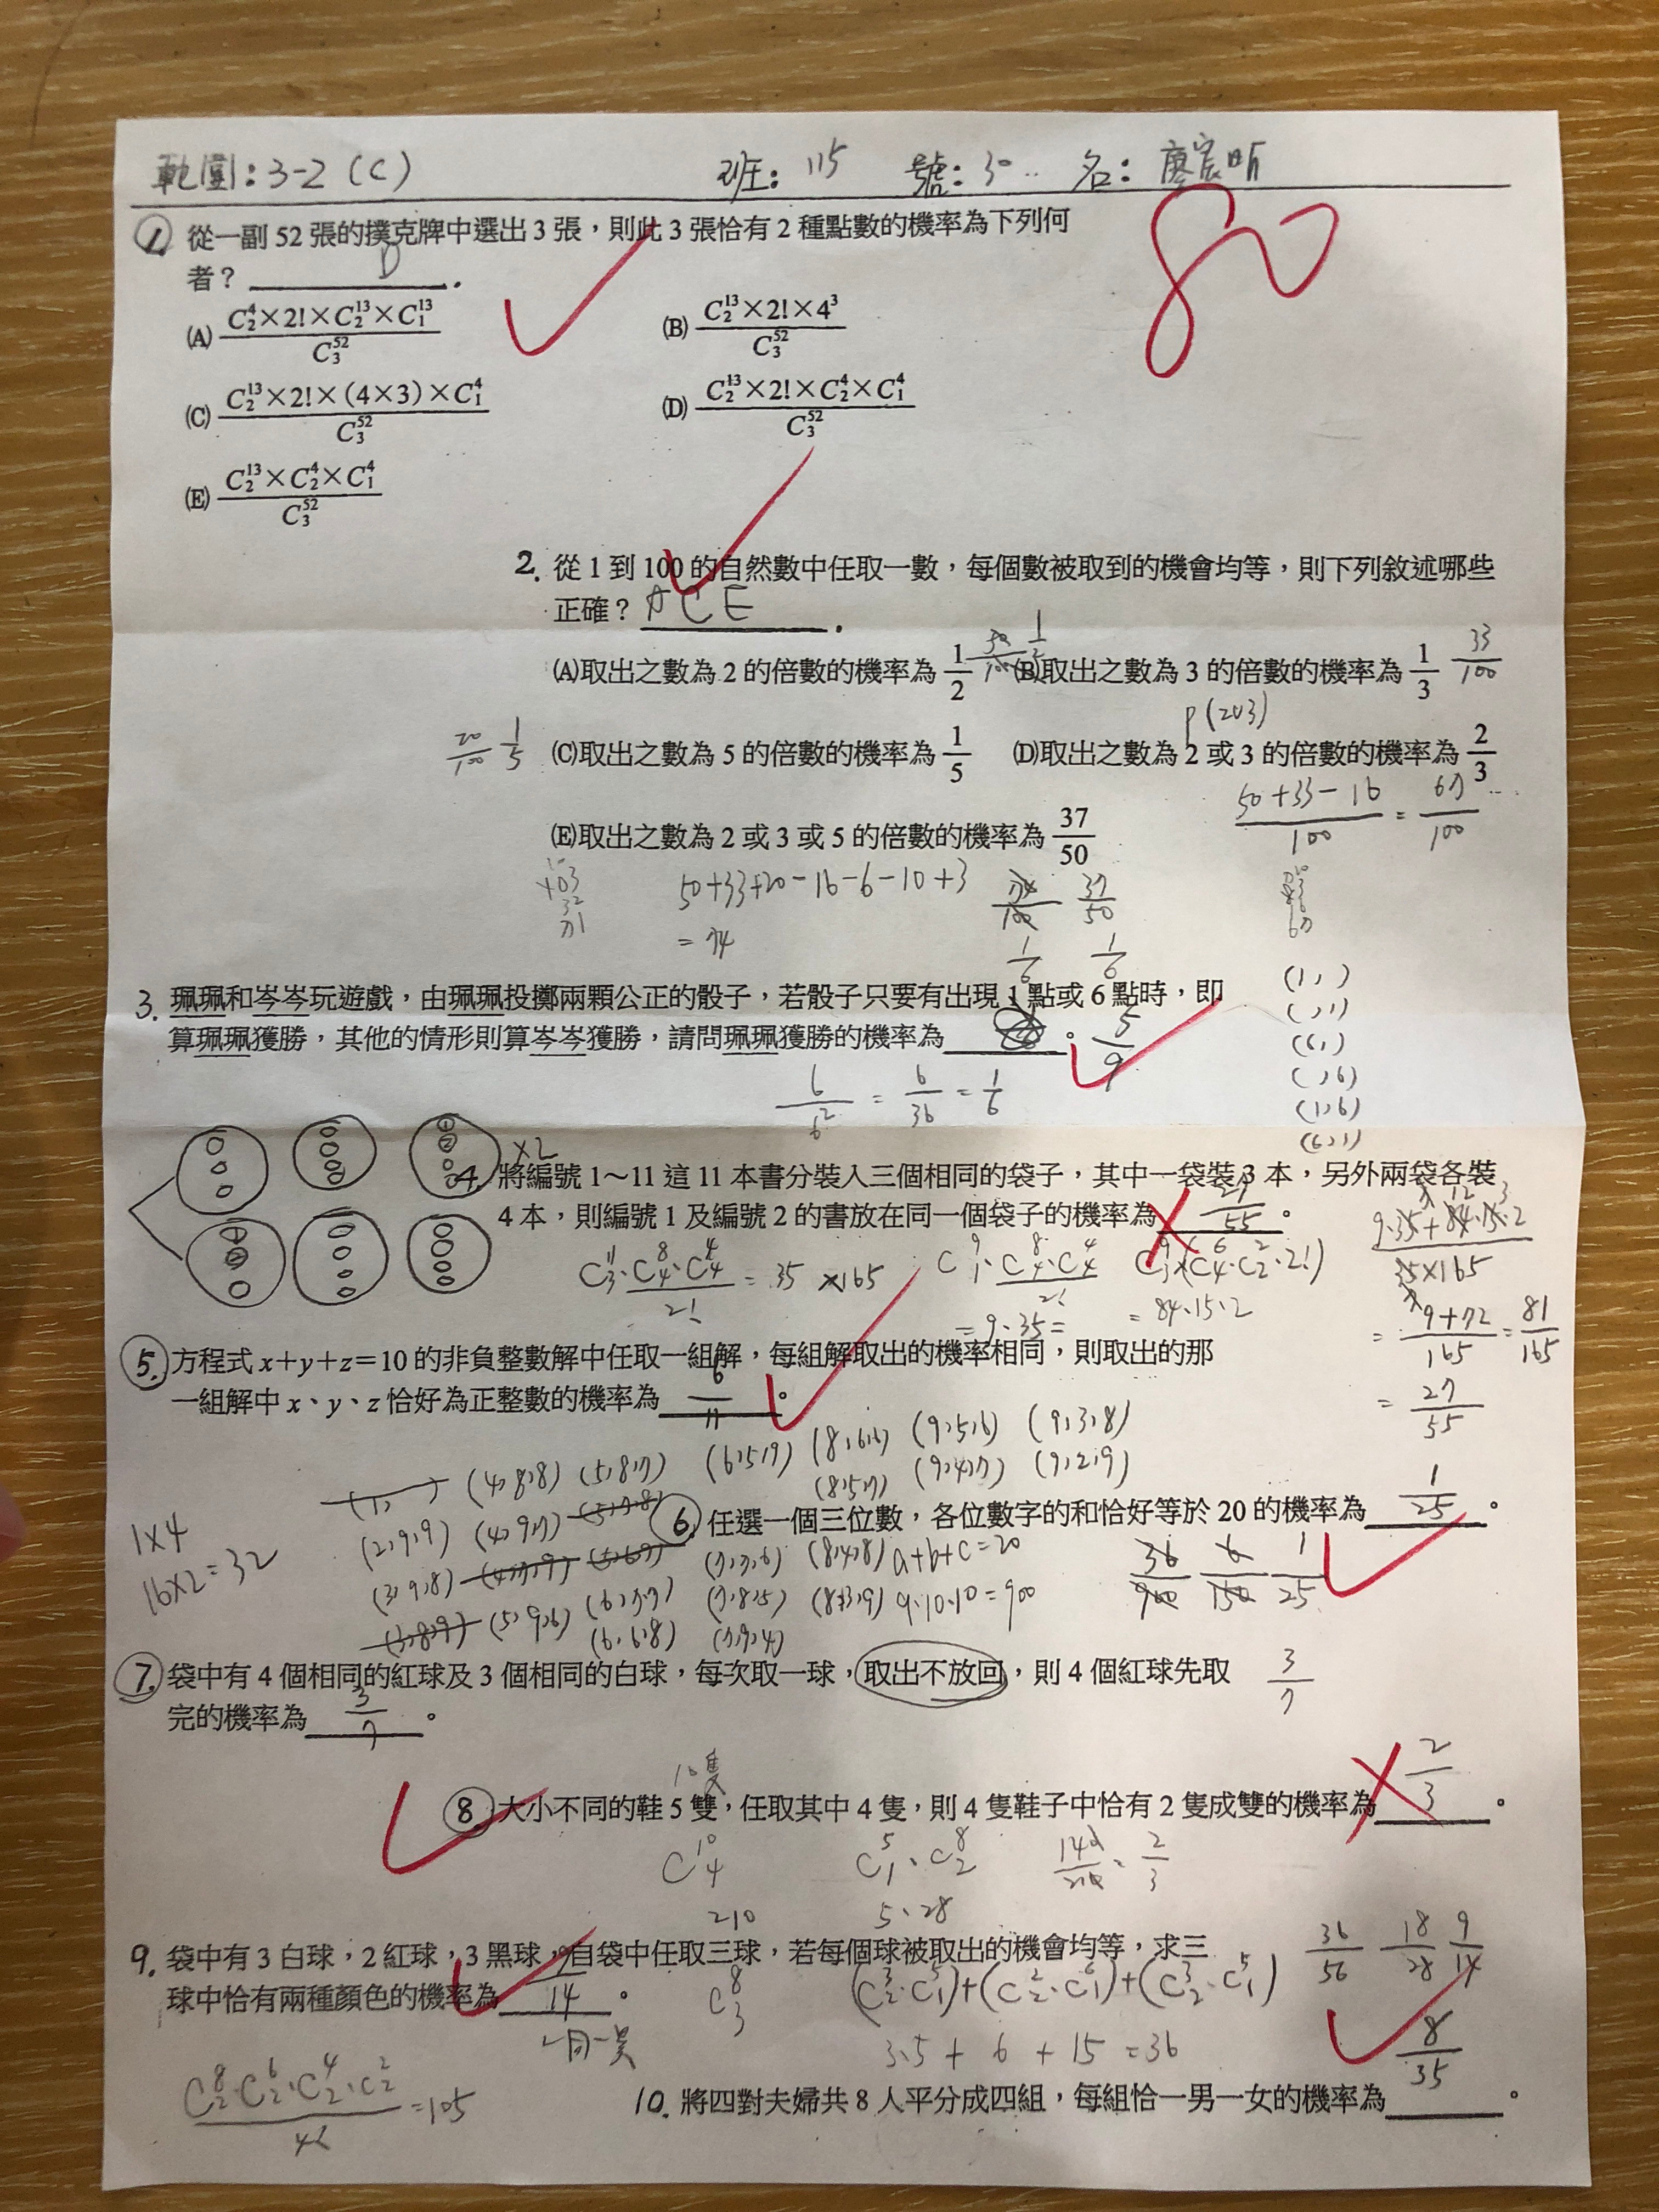 範圍:3-2(C) 班:115 號:30 名:廖宸昕
80
1. 從一副 52 張的撲克牌中選出 3 張，則此 3 張恰有 2 種點數的機率為下列何
者？ D .
(A) C₂⁴×2!×C₂¹³×C₁¹³ / C₃⁵² (B) C₂¹³×2!×4³ / C₃⁵²
(C) C₂¹³×2!×(4×3)×C₁⁴ / C₃⁵² (D) C₂¹³×2!×C₂⁴×C₁⁴ / C₃⁵²
(E) C₂¹³×C₂⁴×C₁⁴ / C₃⁵²
2. 從 1 到 100 的自然數中任取一數，每個數被取到的機會均等，則下列敘述哪些
正確？ A C E .
(A)取出之數為 2 的倍數的機率為 1/2 50/100 1/2 (B)取出之數為 3 的倍數的機率為 1/3 33/100
P(2∪3)
20/100 1/5 (C)取出之數為 5 的倍數的機率為 1/5 (D)取出之數為 2 或 3 的倍數的機率為 2/3
50+33-16 / 100 = 67/100
(E)取出之數為 2 或 3 或 5 的倍數的機率為 37/50
50+33+20-16-6-10+3 74/100 37/50
=74
1/6 1/6
3. 珮珮和岑岑玩遊戲，由珮珮投擲兩顆公正的骰子，若骰子只要有出現 1 點或 6 點時，即
算珮珮獲勝，其他的情形則算岑岑獲勝，請問珮珮獲勝的機率為 。 5/9
6/6² = 6/36 = 1/6
(1, )
( ,1)
(6, )
( ,6)
(1,6)
(6,1)
×2
4. 將編號 1～11 這 11 本書分裝入三個相同的袋子，其中一袋裝 3 本，另外兩袋各裝
4 本，則編號 1 及編號 2 的書放在同一個袋子的機率為 27/55 。
C₃¹¹·C₄⁸·C₄⁴ / 2! = 35×165 C₁⁹·C₄⁸·C₄⁴ / 2! C₃⁹×(C₄⁶·C₂²·2!)
=9·35= =84·15·2
9·35+84·15·2 / 35×165
= 9+72 / 165 = 81/165
= 27/55
5. 方程式 x+y+z=10 的非負整數解中任取一組解，每組解取出的機率相同，則取出的那
一組解中 x、y、z 恰好為正整數的機率為 6/11 。
(4,8,8) (5,8,7) (6,5,9) (8,6,6) (9,5,6) (9,3,8)
(8,5,7) (9,4,7) (9,2,9)
6. 任選一個三位數，各位數字的和恰好等於 20 的機率為 1/25 。
1×4
16×2=32
(2,9,9) (4,9,7) (5,7,8)
(3,9,8) (4,7,9) (5,6,9) (7,7,6) (8,4,8) a+b+c=20 36/900 6/150 1/25
(3,8,9) (5,9,6) (6,7,7) (7,8,5) (8,3,9) 9·10·10=900
(6,6,8) (7,9,4)
7. 袋中有 4 個相同的紅球及 3 個相同的白球，每次取一球，取出不放回，則 4 個紅球先取
完的機率為 3/7 。
3/7
10隻
8. 大小不同的鞋 5 雙，任取其中 4 隻，則 4 隻鞋子中恰有 2 隻成雙的機率為 2/3 。
C₄¹⁰ C₁⁵·C₂⁸ 140/210 = 2/3
210 5·28
9. 袋中有 3 白球，2 紅球，3 黑球，自袋中任取三球，若每個球被取出的機會均等，求三
球中恰有兩種顏色的機率為 9/14 。
C₃⁸ (C₂³·C₁⁵)+(C₂²·C₁⁶)+(C₂³·C₁⁵) 36/56 18/28 9/14
3·5 + 6 + 15 = 36
C₂⁸·C₂⁶·C₂⁴·C₂² / 4! =105
10. 將四對夫婦共 8 人平分成四組，每組恰一男一女的機率為 8/35 。